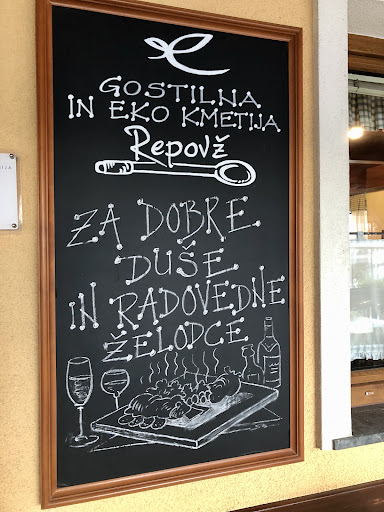 GOSTILNA
IN EKO KMETIJA
Repovž
ZA DOBRE
DUŠE
IN RADOVEDNE
ŽELODCE